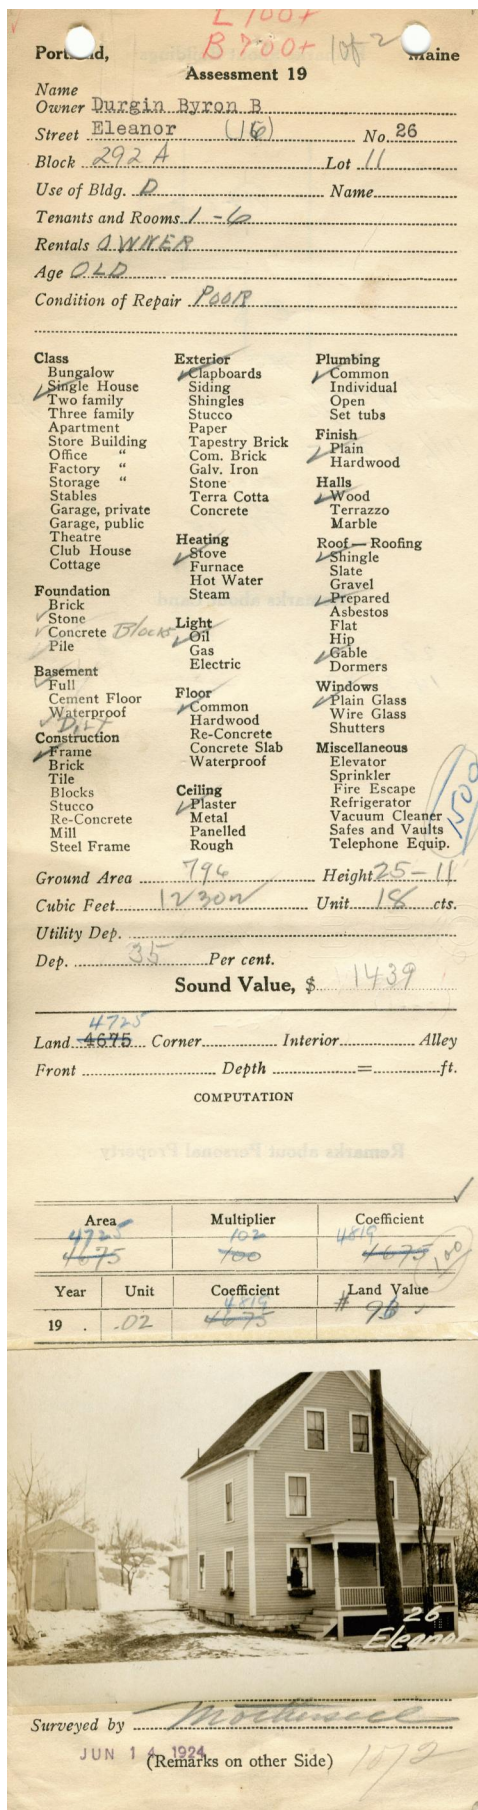 L 100+
B 700+ 1 of 2
Portland, Maine
Assessment 19
Name
Owner Durgin Byron B
Street Eleanor (16) No. 26
Block 292 A Lot 11
Use of Bldg. D Name
Tenants and Rooms 1-6
Rentals OWNER
Age OLD
Condition of Repair POOR
Class
Bungalow
Single House
Two family
Three family
Apartment
Store Building
Office "
Factory "
Storage "
Stables
Garage, private
Garage, public
Theatre
Club House
Cottage
Foundation
Brick
Stone
Concrete Blocks
Pile
Basement
Full
Cement Floor
Waterproof
Dirt
Construction
Frame
Brick
Tile
Blocks
Stucco
Re-Concrete
Mill
Steel Frame
Exterior
Clapboards
Siding
Shingles
Stucco
Paper
Tapestry Brick
Com. Brick
Galv. Iron
Stone
Terra Cotta
Concrete
Heating
Stove
Furnace
Hot Water
Steam
Light
Oil
Gas
Electric
Floor
Common
Hardwood
Re-Concrete
Concrete Slab
Waterproof
Ceiling
Plaster
Metal
Panelled
Rough
Plumbing
Common
Individual
Open
Set tubs
Finish
Plain
Hardwood
Halls
Wood
Terrazzo
Marble
Roof — Roofing
Shingle
Slate
Gravel
Prepared
Asbestos
Flat
Hip
Gable
Dormers
Windows
Plain Glass
Wire Glass
Shutters
Miscellaneous
Elevator
Sprinkler
Fire Escape
Refrigerator
Vacuum Cleaner
Safes and Vaults
Telephone Equip.
1500
Ground Area 796 Height 25-11
Cubic Feet 12300 Unit 18 cts.
Utility Dep.
Dep. 35 Per cent.
Sound Value, $ 1439
4725
Land 4675 Corner Interior Alley
Front Depth = ft.
COMPUTATION
Area Multiplier Coefficient
4725 102 4819
4675 100 4675 100
Year Unit Coefficient Land Value
4819
19 . .02 4675 # 96
26
Eleanor
Surveyed by
JUN 14 1924
(Remarks on other Side)